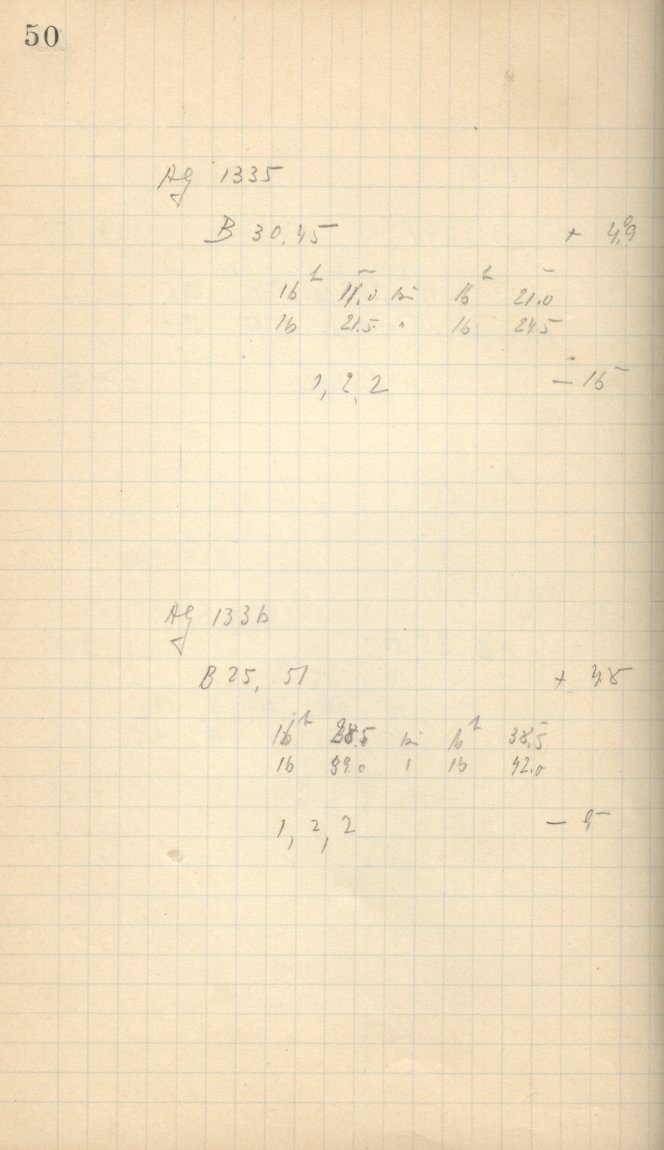 50
Ag 1335
B 30.45 + 4,9
16ʰ 11.0 bis 16ʰ 21.0
16 21.5 " 16 24.5
1, 2, 2 – 16
Ag 1336
B 25, 51 + 4,8
16ʰ 28.5 bis 16ʰ 38.5
16 39.0 " 16 42.0
1, 2, 2